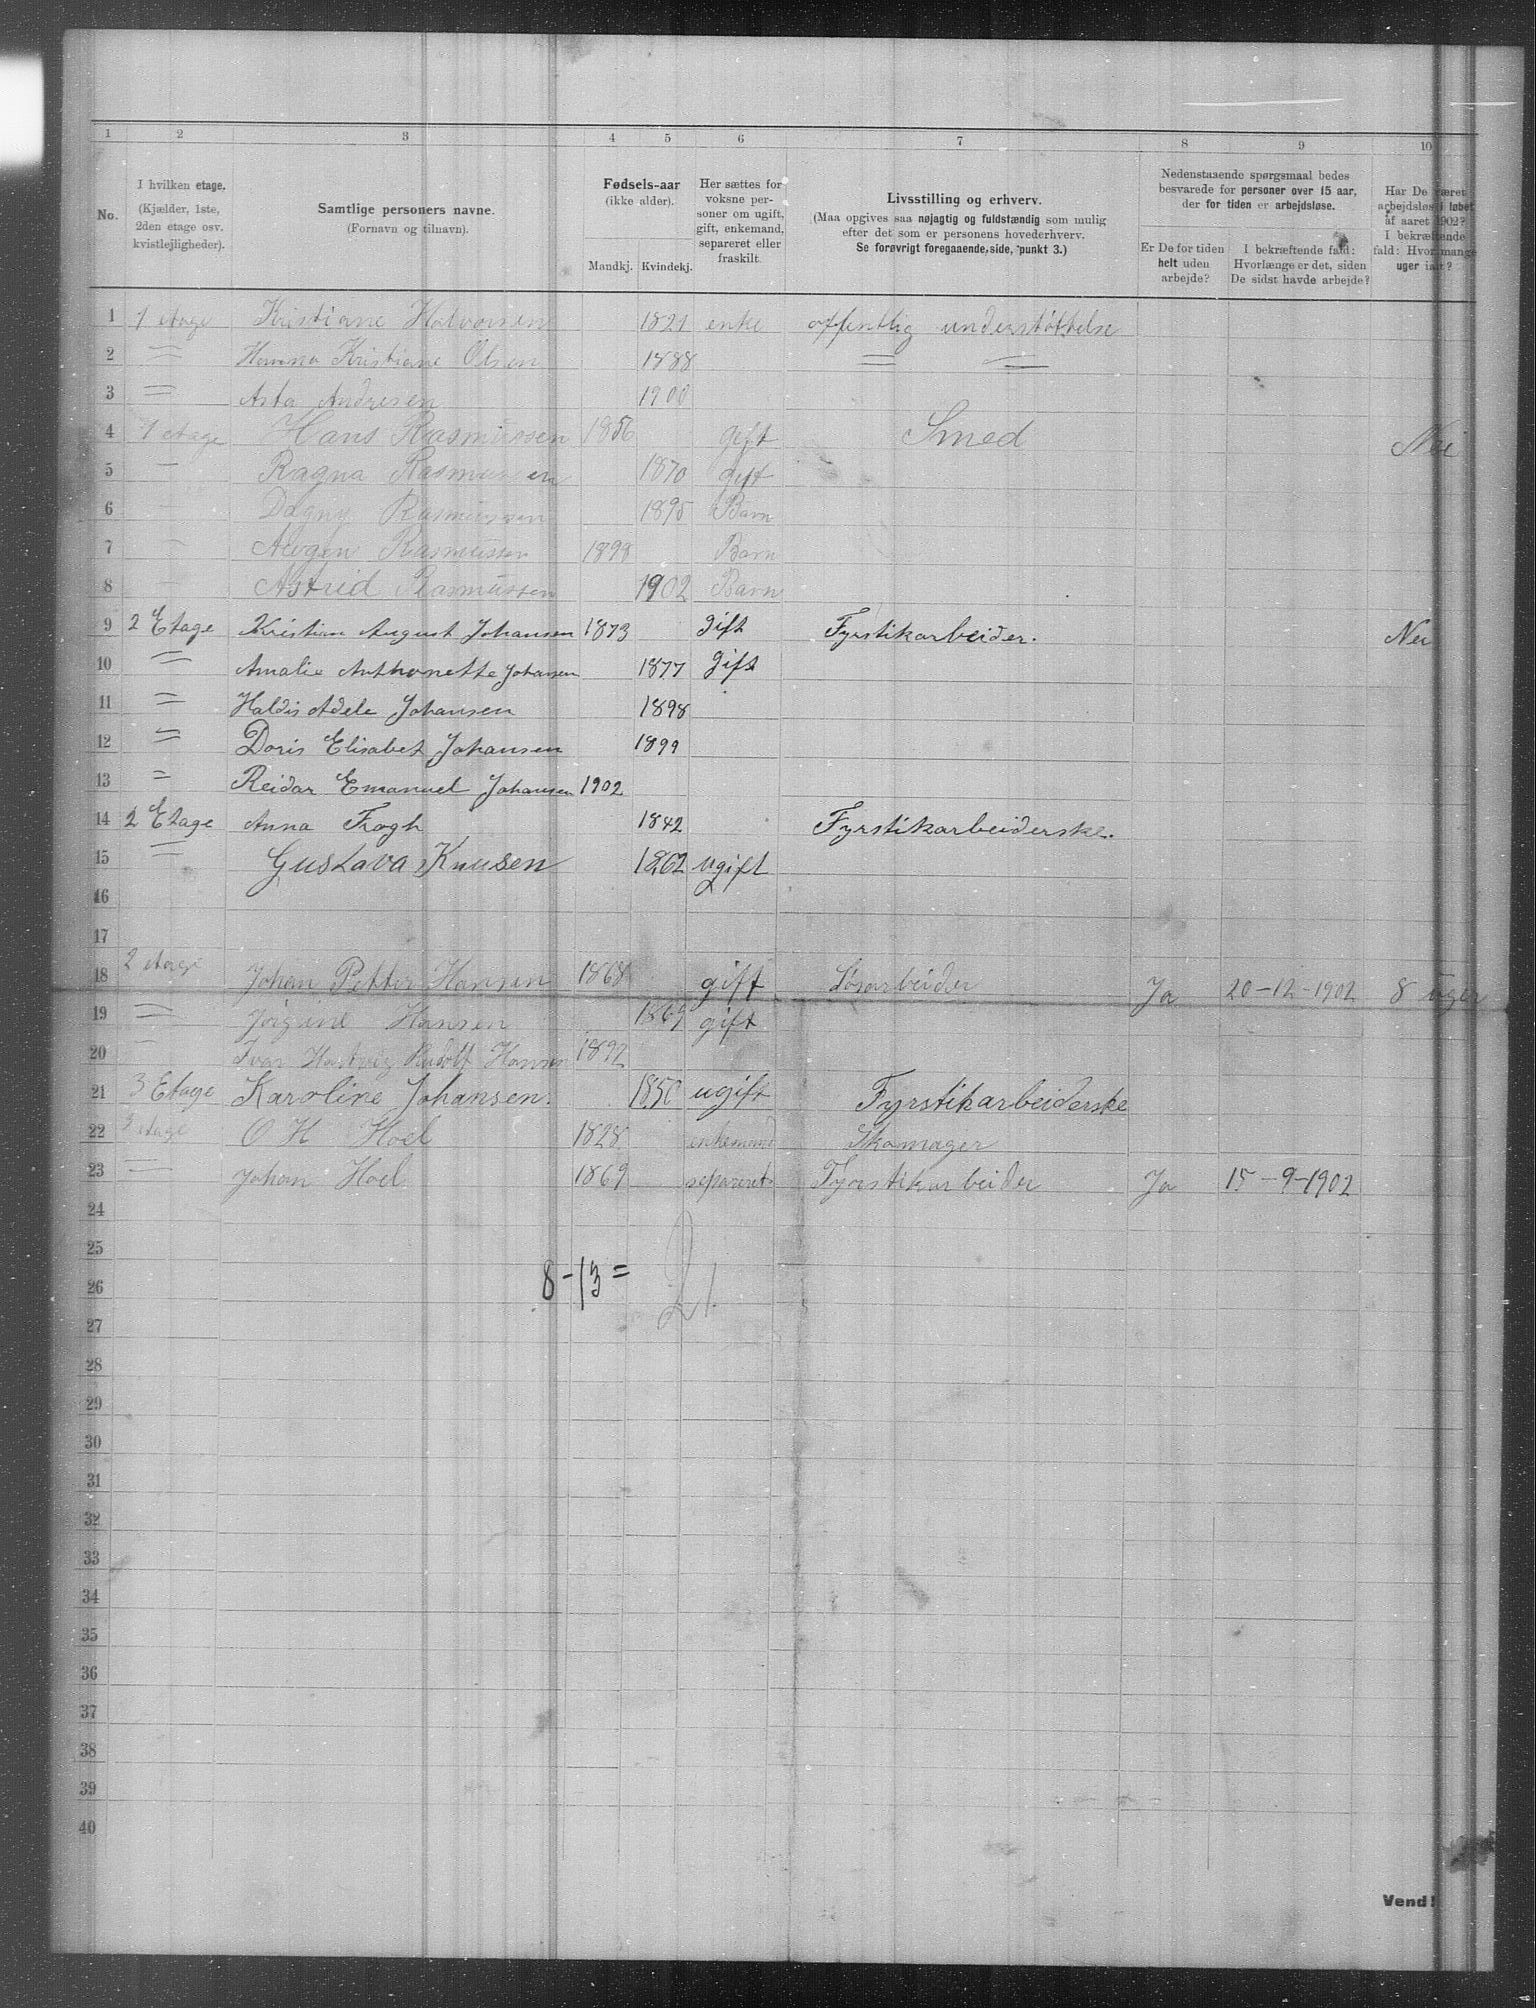 1 2 3 4 5 6 7 8 9 10
No.
I hvilken etage.
(Kjælder, 1ste,
2den etage osv.
kvistlejligheder).
Samtlige personers navne.
(Fornavn og tilnavn).
Fødsels-aar
(ikke alder).
Mandkj. Kvindekj.
Her sættes for
voksne per-
soner om ugift,
gift, enkemand,
separeret eller
fraskilt.
Livsstilling og erhverv.
(Maa opgives saa nøjagtig og fuldstændig som mulig
efter det som er personens hovederhverv.
Se forøvrigt foregaaende side, punkt 3.)
Nedenstaaende spørgsmaal bedes
besvarede for personer over 15 aar,
der for tiden er arbejdsløse.
Er De for tiden
helt uden
arbejde?
I bekræftende fald:
Hvorlænge er det, siden
De sidst havde arbejde?
Har De været
arbejdsløs i løbet
af aaret 1902?
I bekræftende
fald: Hvor mange
uger ialt?
1 1 etage Kristiane Halvorsen 1821 enke offentlig understøttelse
2 — Kristiane Olsen 1888 — —
3 — Asta Andresen 1900
4 1 etage Hans Rasmussen 1856 gift Smed Nei
5 — Ragna Rasmussen 1870 gift
6 — Dagny Rasmussen 1895 Barn
7 — Rasmussen 1898 Barn
8 — Astrid Rasmussen 1902 Barn
9 2 Etage Kristian August Johansen 1873 gift Fyrstikarbeider. Nei
10 — Amalie Anthonette Johansen 1877 gift
11 — Haldis Adele Johansen 1898
12 — Doris Elisabet Johansen 1899
13 — Reidar Emanuel Johansen 1902
14 2 Etage Anna Frogh 1842 Fyrstikarbeiderske.
15 — Gustava Knusen 1862 ugift
16
17
18 2 etage Johan Petter Hansen 1868 gift Løsarbeider Ja 20-12-1902 8 uger
19 — Jørgine Hansen 1869 gift
20 — Ivar Hartvig Rudolf Hansen 1892
21 3 Etage Karoline Johansen. 1850 ugift Fyrstikarbeiderske
22 3 etage O H Hoel 1828 enkemand Skomager
23 — Johan Hoel 1869 separeret Fyrstikarbeider Ja 15-9-1902
24
25
26 8-13= 21.
27
28
29
30
31
32
33
34
35
36
37
38
39
40
Vend!